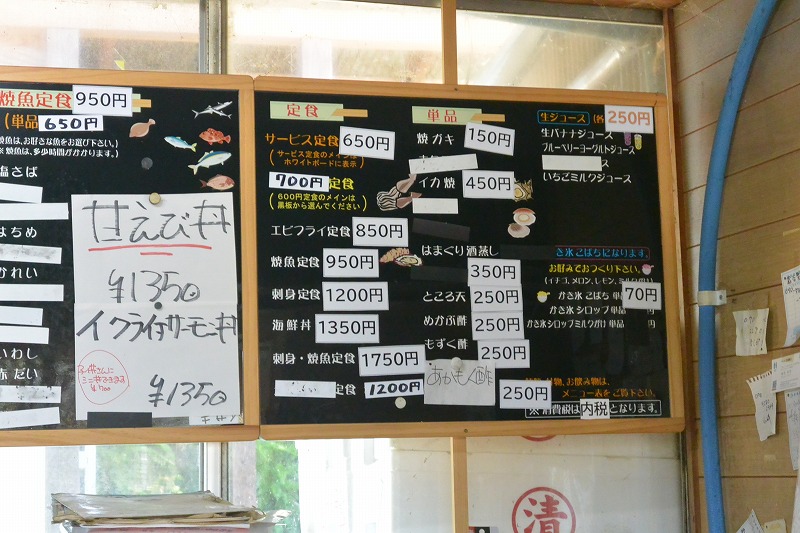 焼魚定食 950円
(単品 650円
焼魚は、お好きな魚をお選び下さい。
※焼魚は、多少時間がかかります。
塩さば
はちめ
かれい
いわし
赤だい
甘えび丼
¥1350
イクラ付サーモン丼
¥1350
定食
サービス定食 650円
(サービス定食のメインは
ホワイトボードに表示)
700円 定食
(600円定食のメインは
黒板から選んでください)
エビフライ定食 850円
焼魚定食 950円
刺身定食 1200円
海鮮丼 1350円
刺身・焼魚定食 1750円
定食 1200円
単品
焼ガキ 150円
イカ焼 450円
はまぐり酒蒸し
350円
ところ天 250円
めかぶ酢 250円
もずく酢 250円
あかもく酢 250円
生ジュース 250円
生バナナジュース
ブルーベリーヨーグルトジュース
ス
いちごミルクジュース
かき氷こばちになります。
お好みでおつくり下さい。
かき氷 こばち 単 70円
かき氷シロップ 単品 円
かき氷シロップミルクがけ 単品 円
物、お飲み物は、
メニュー表をご覧下さい。
※消費税は内税となります。
済